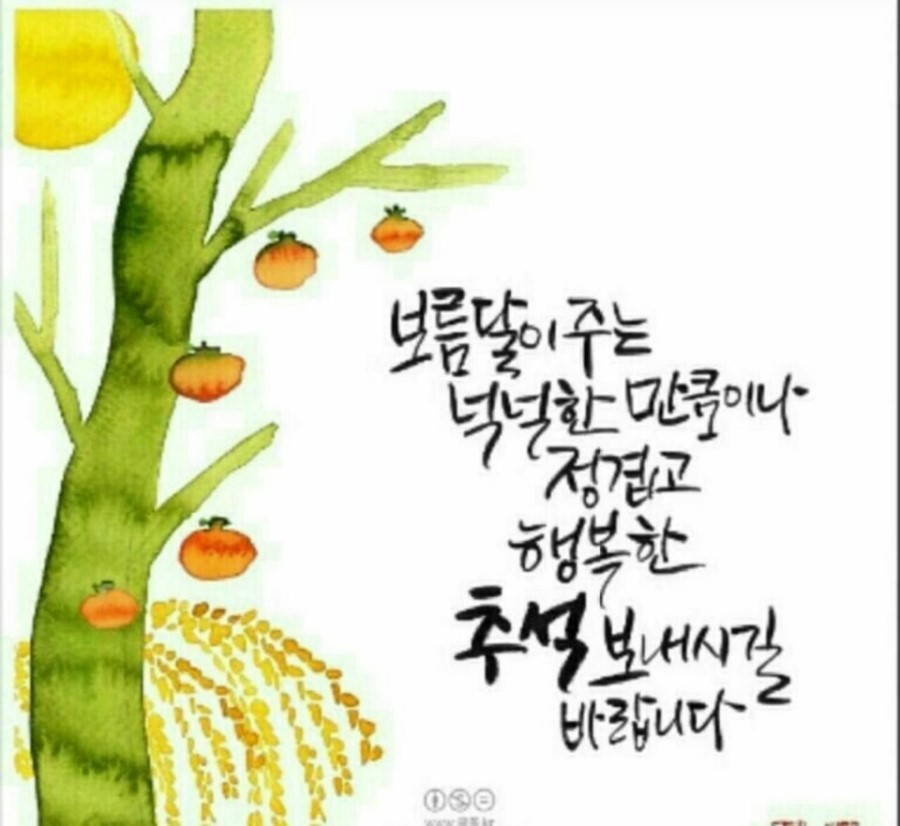 보름달이 주는
넉넉한 만큼이나
정겹고
행복한
추석 보내시길
바랍니다